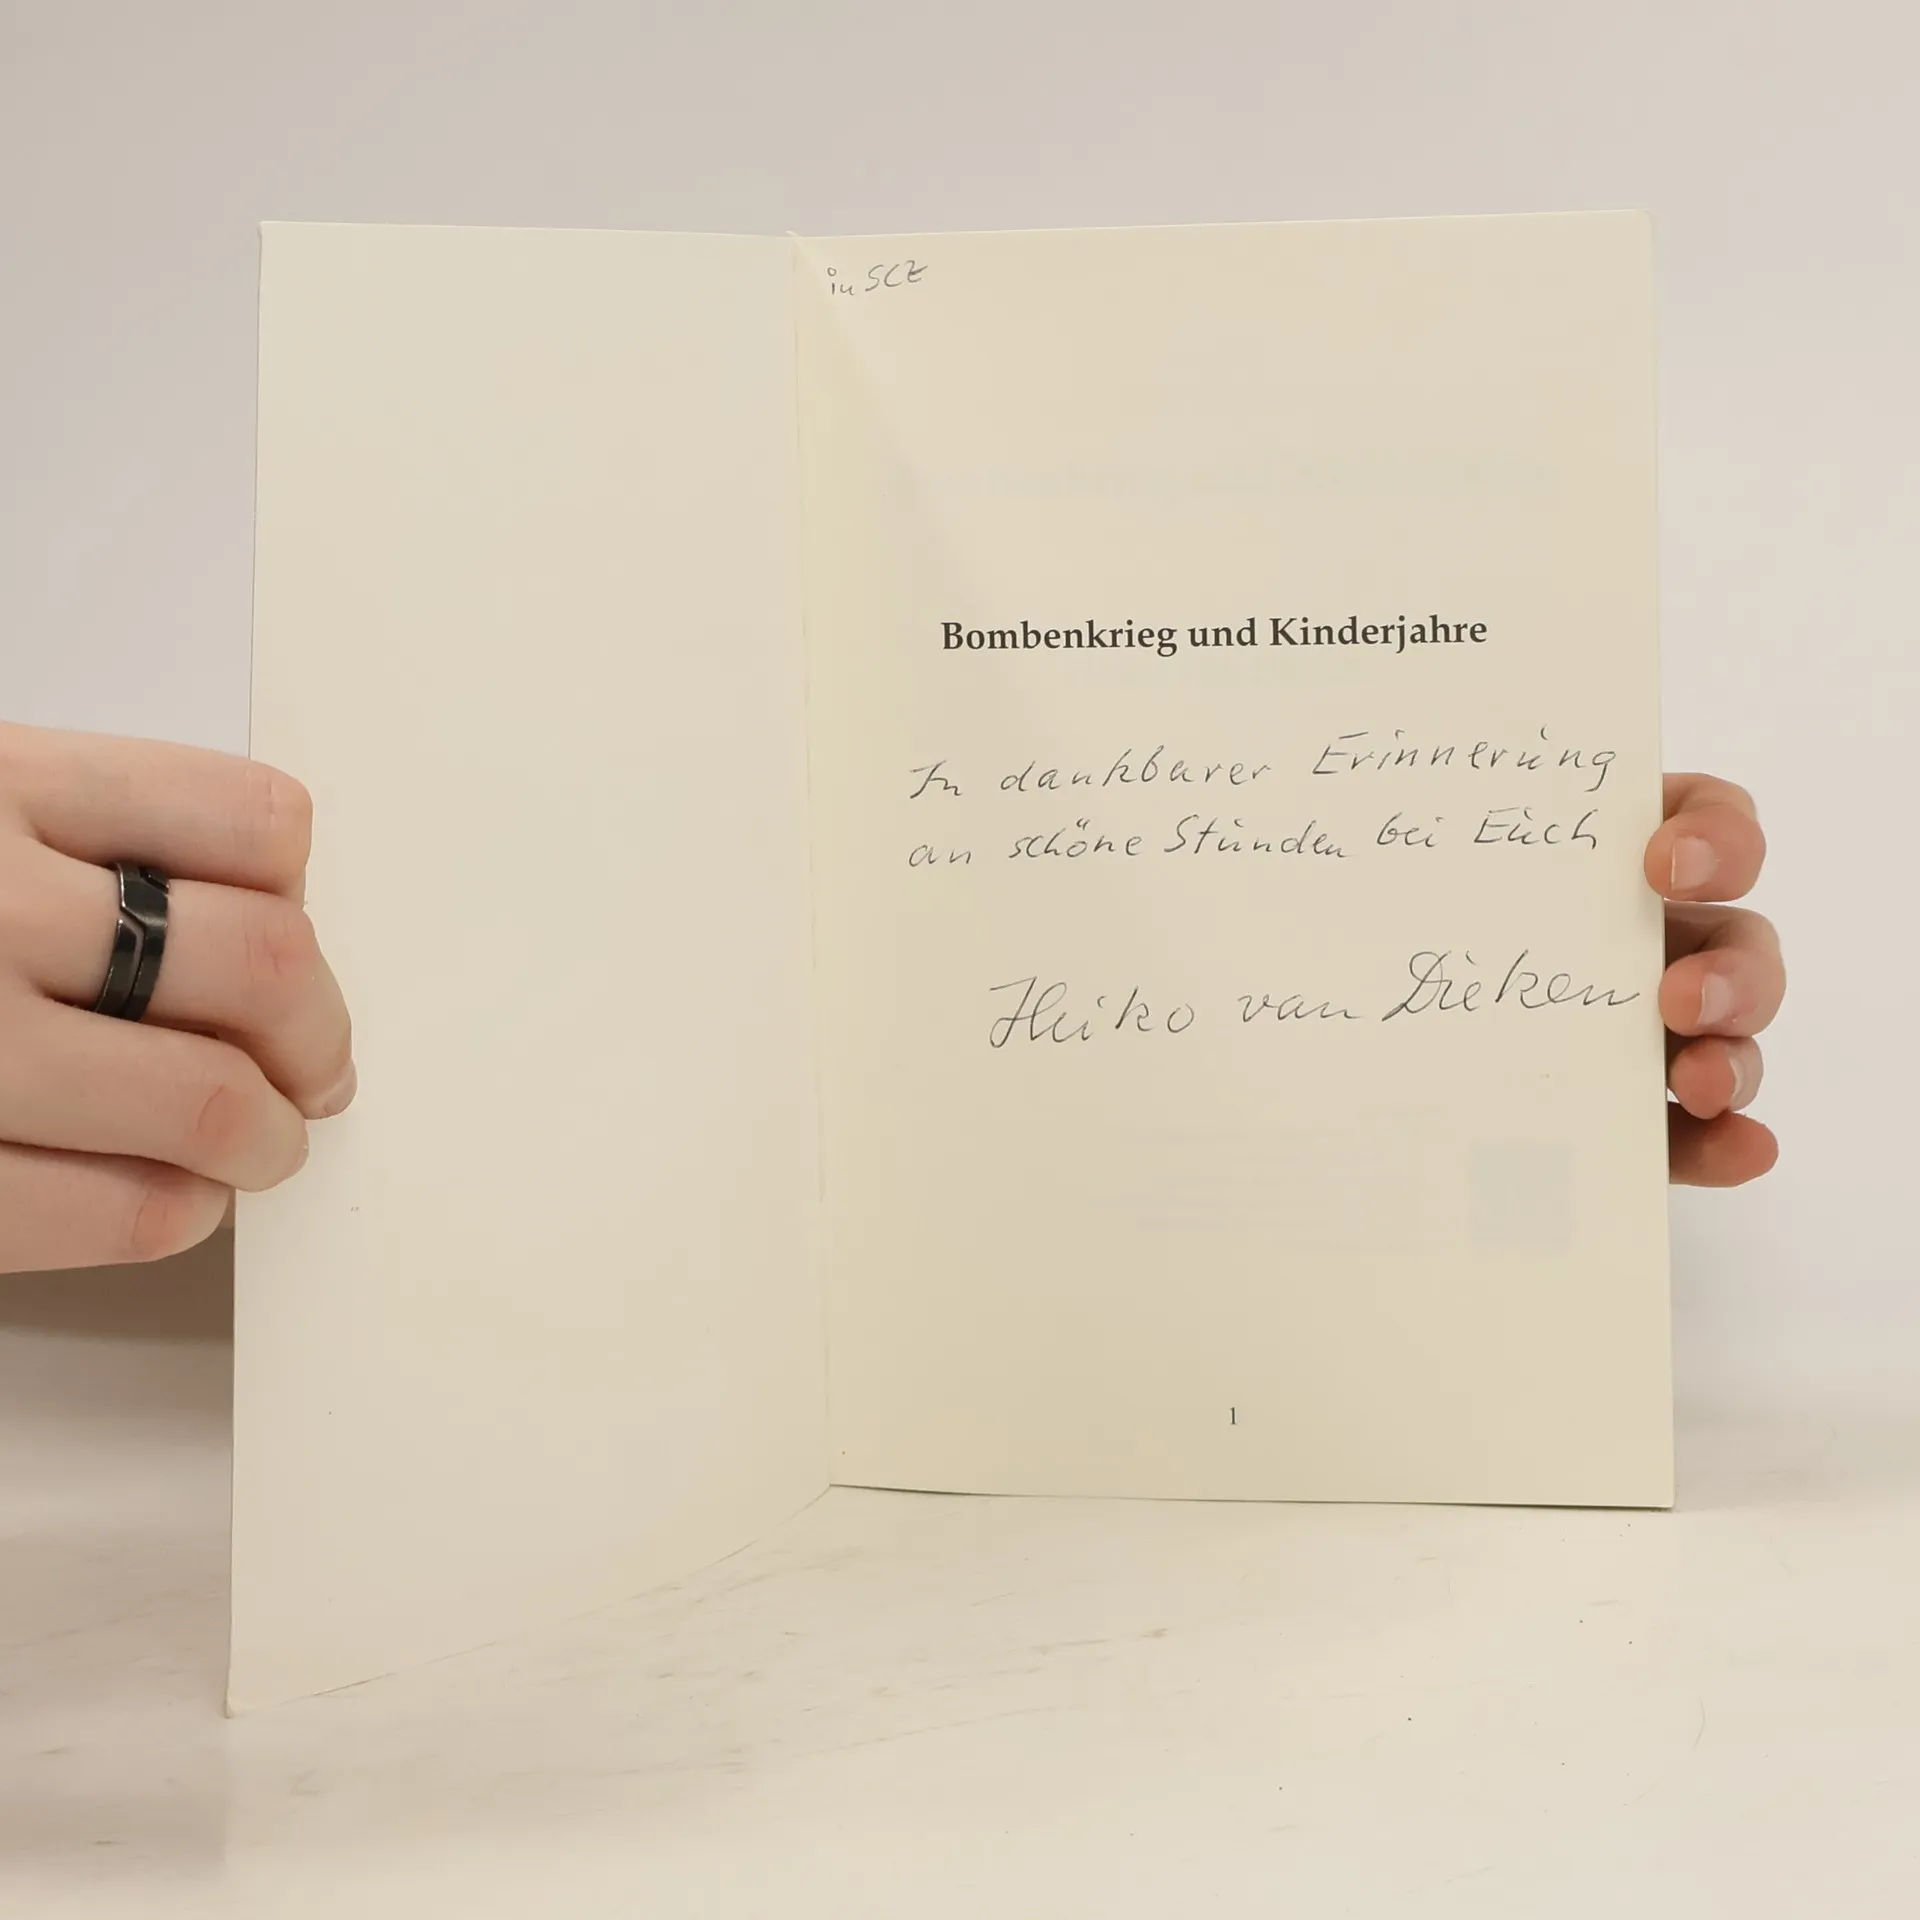 in SCZ
Bombenkrieg und Kinderjahre
In dankbarer Erinnerung
an schöne Stunden bei Euch
Heiko van Dieken
1